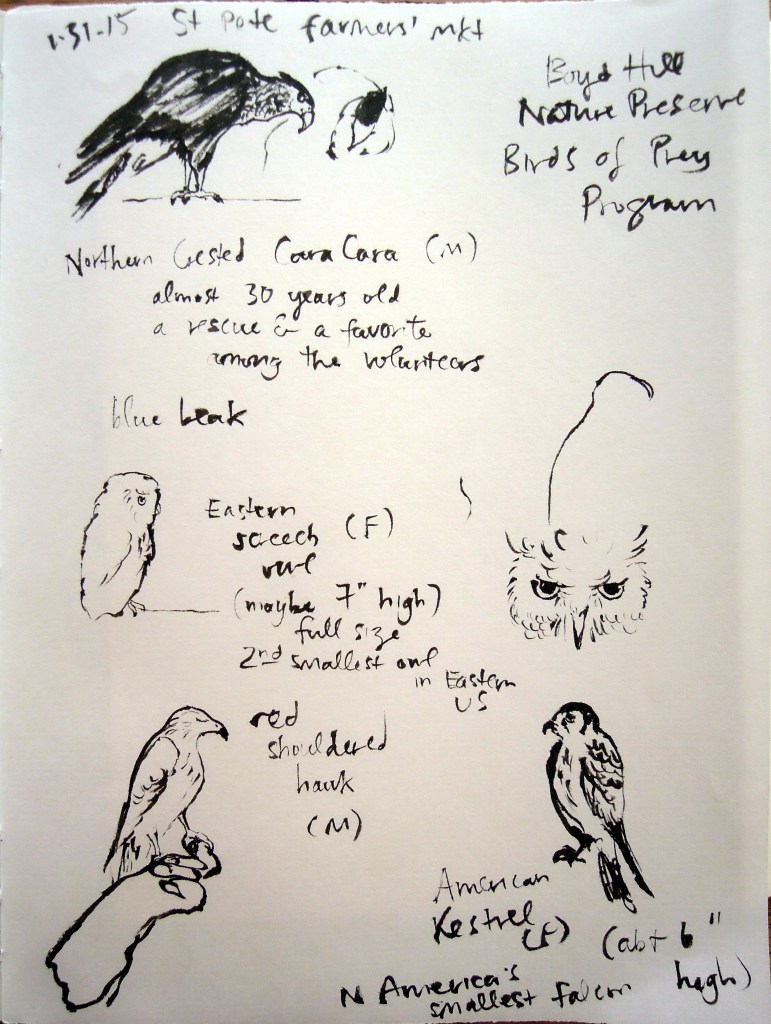 1-31-15 St Pete farmers' mkt
Boyd Hill
Nature Preserve
Birds of Prey
Program
Northern Crested CaraCara (M)
almost 30 years old
a rescue & a favorite
among the volunteers
blue beak
Eastern
screech (F)
owl
(maybe 7" high)
full size
2nd smallest owl
in Eastern
US
red
shouldered
hawk
(M)
American
Kestrel
(F) (abt 6"
high)
N America's
smallest falcon